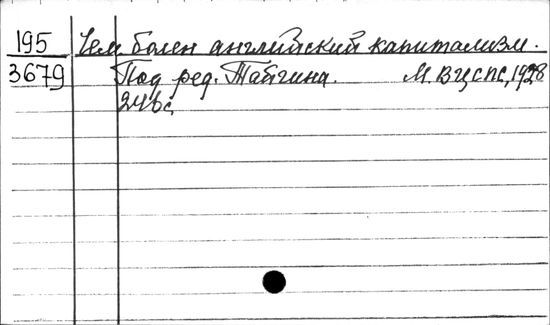 195 Чем болен английский капитализм.
3679 Под ред. Тайгина. М. ВЦСПС, 1928
246с.